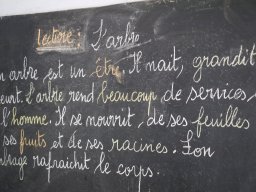 Lecture : L'arbre
n arbre est un être. Il nait, grandit
eurt. L'arbre rend beaucoup de services,
l'homme. Il se nourrit, de ses feuilles
ses fruits et de ses racines. Son
brage rafraichit le corps.